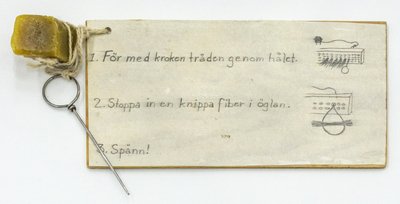 1. För med kroken tråden genom hålet.
2. Stoppa in en knippa fiber i öglan.
3. Spänn!